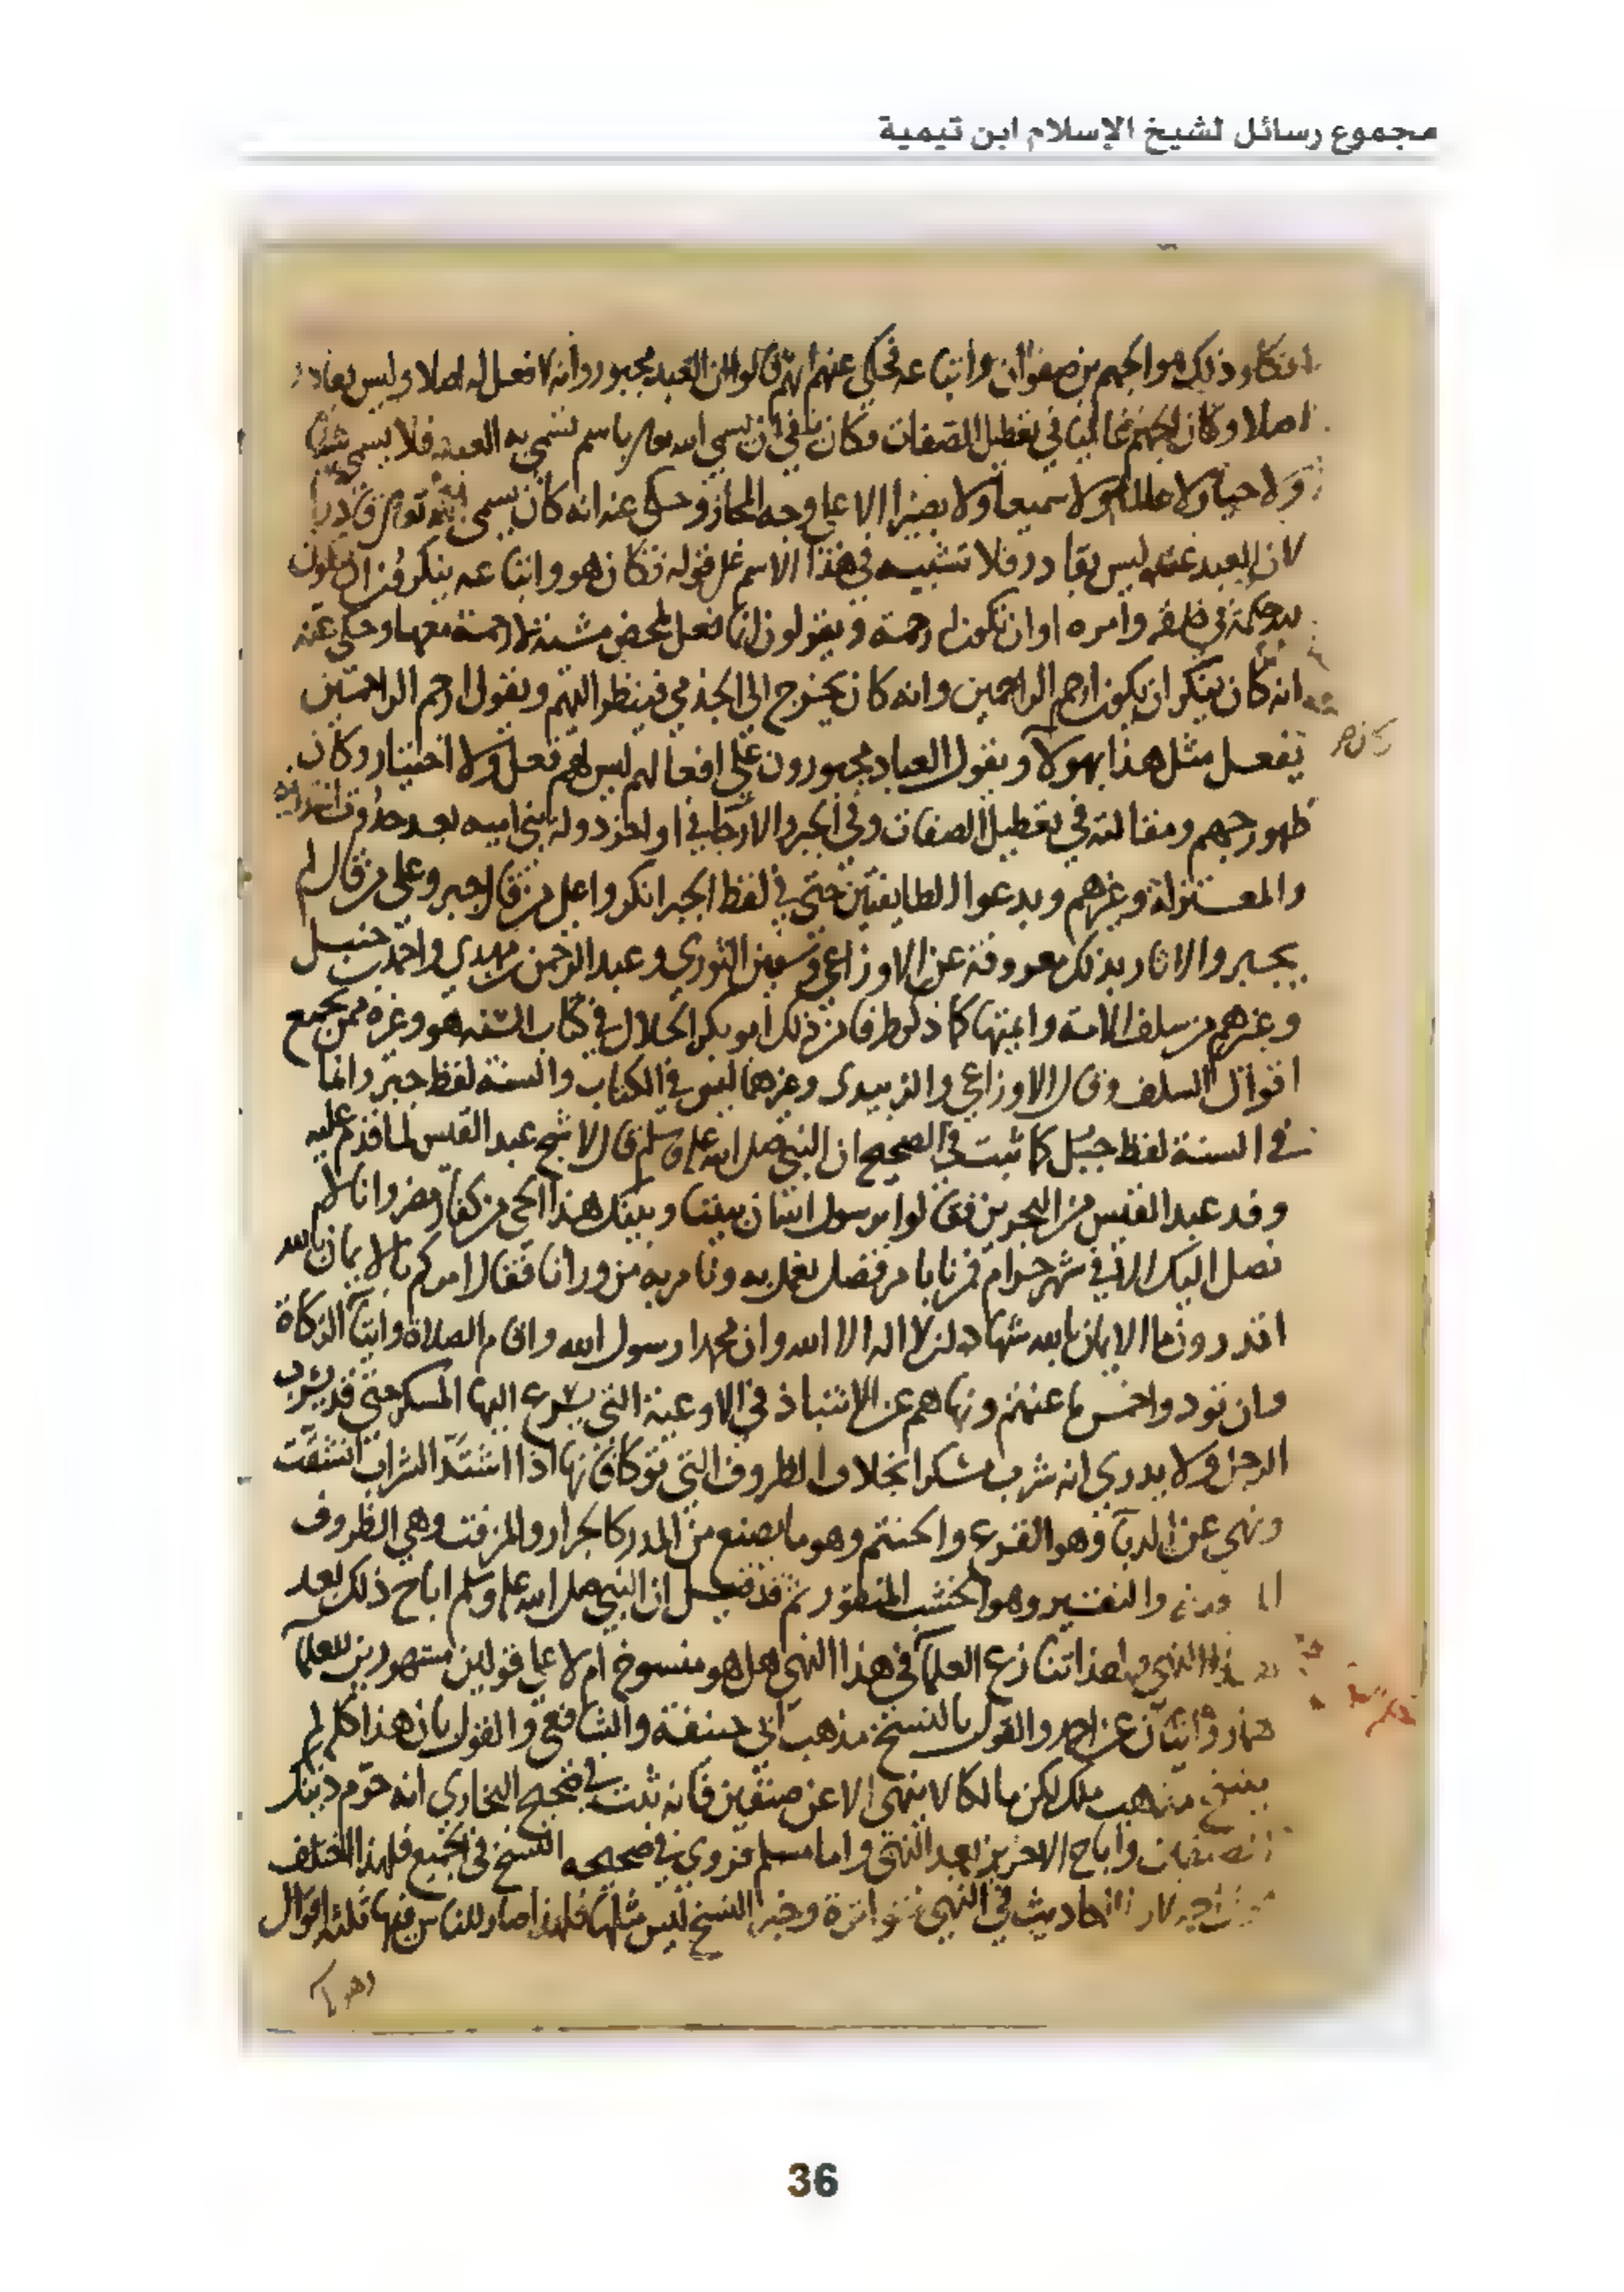 مجموع رسائل لشيخ الإسلام ابن تيمية
ذلك هو الجهم بن صفوان واتباعه فحكى عنهم انهم قالوا ان العبد مجبور وانه لا فعل له اصلا وليس بقادر
اصلا وكان الجهم غاليا في تعطيل الصفات فكان ينفي ان يسمى الله باسم تسمى به العبد فلا يسمى شيا
ولا حيا ولا عالما ولا سميعا ولا بصيرا الا على وجه المجاز وحكى عنه انه كان يسمى الله تعالى قادرا
لان العبد عنده ليس بقادر فلا تشبيه في هذا الاسم على قوله فكان هو واتباعه ينكرون ان يكون
لله حكمة في خلقه وامره او ان تكون له رحمة ويقولون انما فعل لمحض مشيئة لا رحمة معها وحكى عنه
انه كان ينكر ان يكون ارحم الراحمين وانه كان يخرج الى الجذمى فينظر اليهم ويقول ارحم الراحمين
يفعل مثل هذا بهولاء ويقول العباد مجبورون على افعالهم ليس لهم فعل ولا اختيار وكان
ظهور جهم ومقالته في تعطيل الصفات وفي الجبر والارجا في اواخر دولة بني اميه بعد حدوث القدرية
والمعتزلة وغيرهم وبدعوا الطايفتين حتى في لفظ الجبر انكروا على من قال جبر وعلى من قال لم
يجبر والاثار بذلك معروفة عن الاوزاعي وسفين الثوري وعبد الرحمن بن مهدي واحمد بن حنبل
وغيرهم من سلف الامة وايمتها كما ذكر طرفا من ذلك ابو بكر الخلال في كتاب السنه هو وغيره ممن يجمع
اقوال السلف وقال الاوزاعي والزبيدي وغيرهما ليس في الكتاب والسنة لفظ جبر وانما
في السنة لفظ جبل كما ثبت في الصحيح ان النبي صلى الله عليه وسلم قال لاشج عبد القيس لما قدم عليه
وفد عبد القيس من البحرين فقالوا يرسول الله ان بيننا وبينك هذا الحي من كفار مضر وانا لا
نصل اليك الا في شهر حرام فمرنا بامر فصل نعمل به ونامر به من ورانا فقال امركم بالايمان بالله
اتدرون ما الايمان بالله شهادة ان لا اله الا الله وان محمدا رسول الله واقام الصلاة وايتا الزكاة
وان تودوا خمس ما غنمتم ونهاهم عن الانتباذ في الاوعية التي يسرع اليها المسكر حتى قد يشرب
الرجل ولا يدري انه شرب مسكرا بخلاف الظروف التي توكا فانها اذا اشتد الشراب انشقت
ونهى عن الدبا وهو القرع والحنتم وهو ما يصنع من المدر كالجرار والمزفت وهي الظروف
والنقير وهو الخشب المنقور ثم قد قيل ان النبي صلى الله عليه وسلم اباح ذلك بعد
النهي ولهذا تنازع العلما في هذا النهي هل هو منسوخ ام لا على قولين مشهورين للعلما
هما روايتان عن احمد والقول بالنسخ مذهب ابي حنيفة والشافعي والقول بان هذا كله لم
ينسخ مذهب ملك لكن مالكا لا ينهى الا عن صنفين فانه ثبت في صحيح البخاري انه حرم ذينك
الصنفين واباح الاخرين بعد النهي واما مسلم فروى في صحيحه النسخ في الجميع فلهذا اختلف
احاديث في النهي متواترة وخبر النسخ ليس مثلها فلهذا صار للناس فيها ثلثه اقوال
36